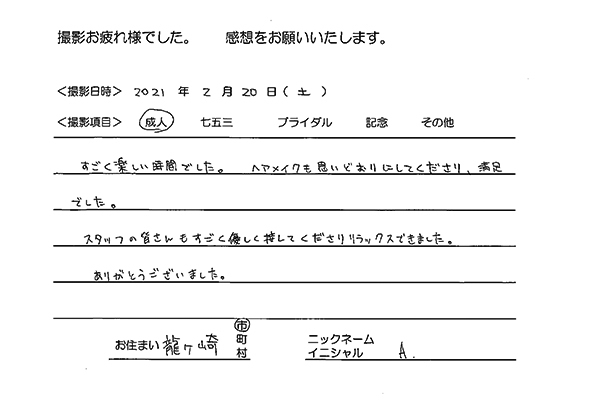 撮影お疲れ様でした。　感想をお願いいたします。
＜撮影日時＞ 2021 年 2 月 20 日（土）
＜撮影項目＞ 成人 七五三 ブライダル 記念 その他
すごく楽しい時間でした。 ヘアメイクも思いどおりにしてくださり、満足
でした。
スタッフの皆さんもすごく優しく接してくださりリラックスできました。
ありがとうございました。
お住まい 龍ヶ崎 市 町 村
ニックネーム
イニシャル A.